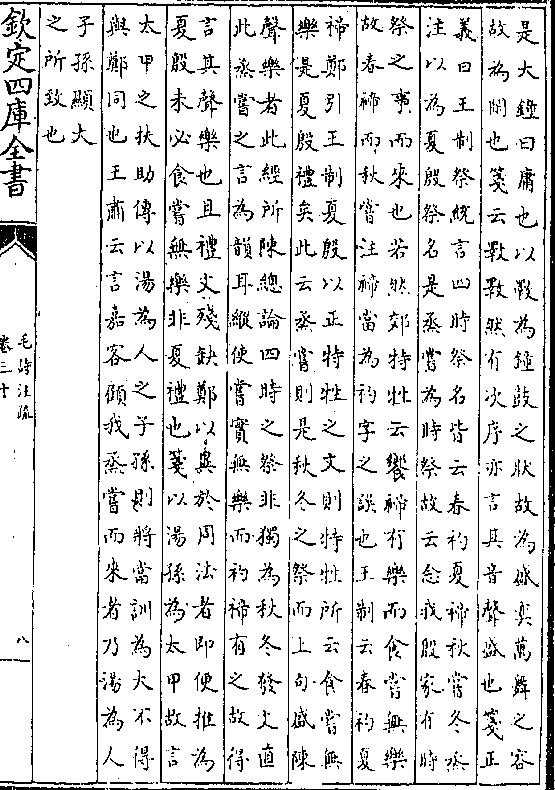 是大鐘曰庸也以斁為鐘鼓之狀故為盛奕萬舞之容
故為閑也箋云斁斁然有次序亦言其音聲盛也箋正
義曰王制祭統言四時祭名皆云春礿夏禘秋嘗冬烝
注以為夏殷祭名是烝嘗為時祭故云念我殷家有時
祭之事而來也若然郊特牲云饗禘有樂而食嘗無樂
故春禘而秋嘗注禘當為礿字之誤也王制云春礿夏
禘鄭引王制夏殷以正特牲之文則特牲所云食嘗無
樂是夏殷禮矣此云烝嘗則是秋冬之祭而上句盛陳
聲樂者此經所陳總論四時之祭非獨為秋冬發文直
此烝嘗之言為韻耳縱使嘗實無樂而礿禘有之故得
言其聲樂也且禮文殘缺鄭以異於周法者即便推為
夏殷未必食嘗無樂非夏禮也箋以湯孫為太甲故言
太甲之扶助傳以湯為人之子孫則將當訓為大不得
與鄭同也王肅云言嘉客顧我烝嘗而來者乃湯為人
子孫顯大
之所致也
欽定四庫全書
毛詩注疏
卷三十
八